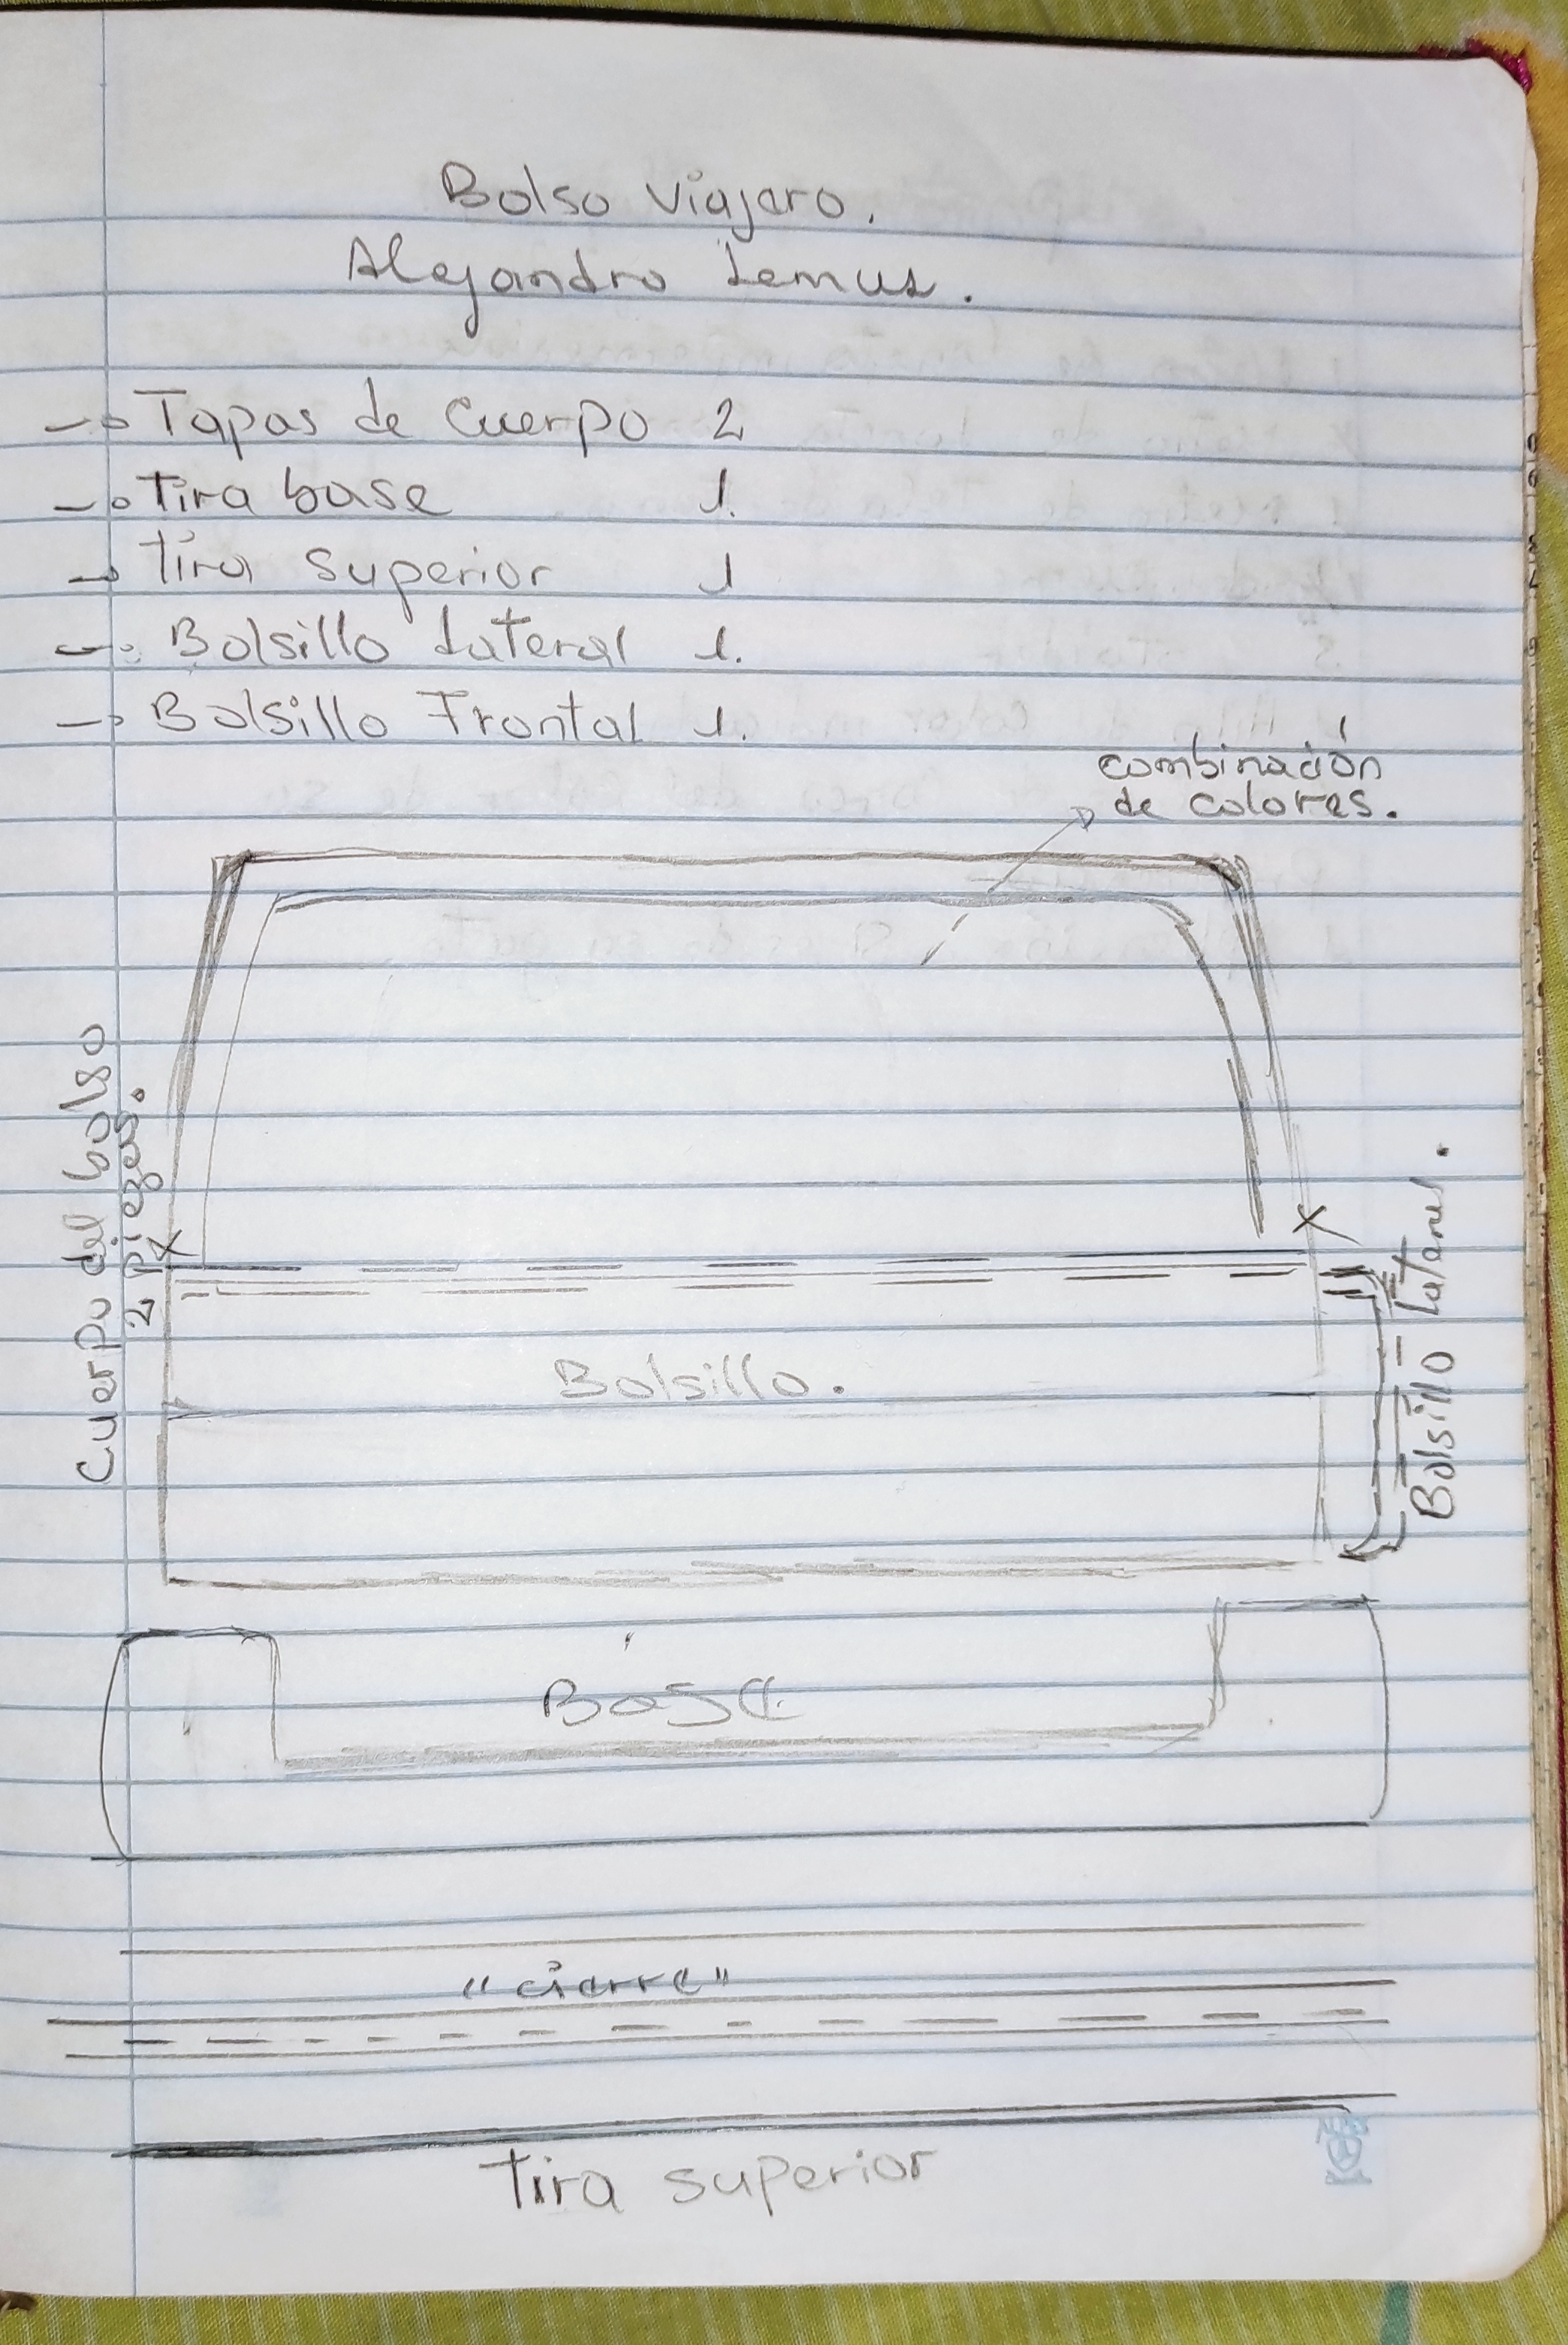 Bolso viajero.
Alejandro Lemus.
Tapas de Cuerpo 2
Tira base 1.
Tira superior 1
Bolsillo Lateral 1.
Bolsillo Frontal 1.
combinación
de colores.
Cuerpo del bolso
2 piezas.
Bolsillo.
Bolsillo Lateral.
Base
"cierre"
Tira superior